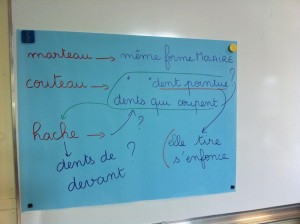 marteau → même forme MOLAIRE
couteau → dent pointue ?
dents qui coupent
hache → ?
dents de ?
devant
elle tire
s'enfonce